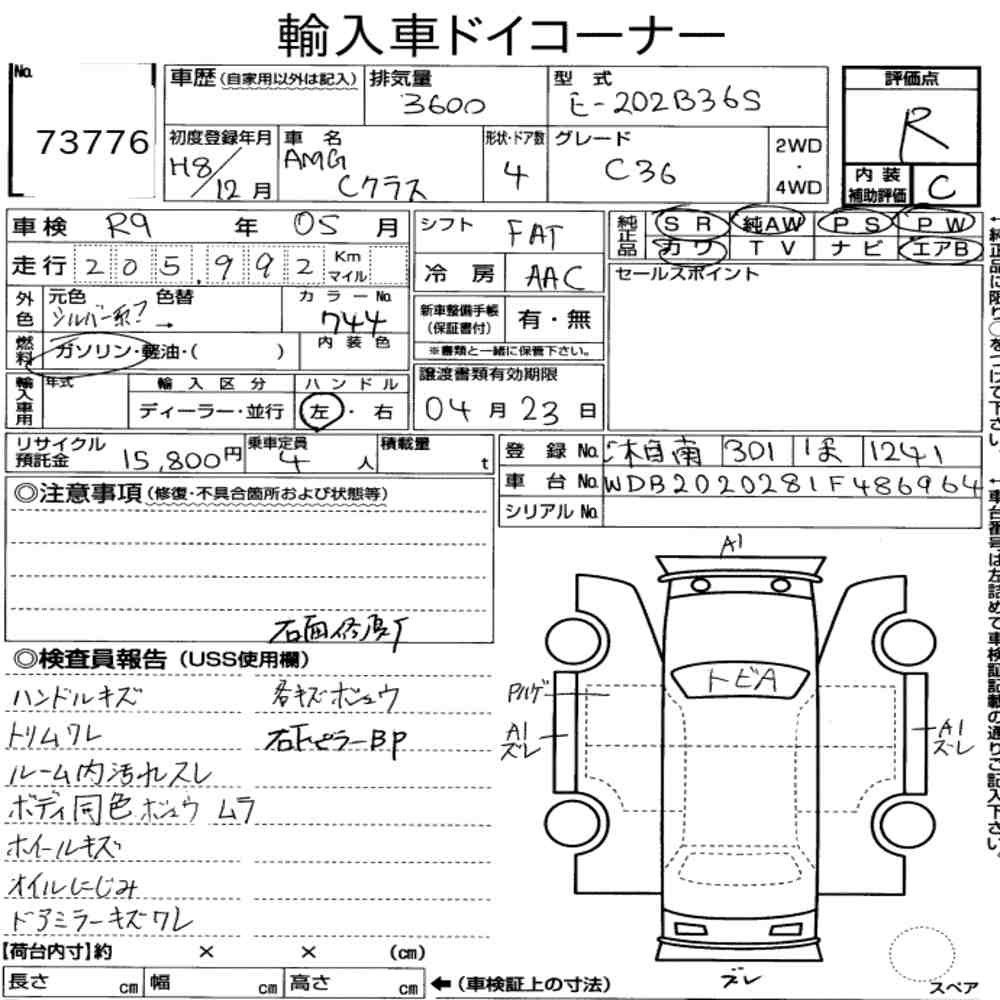 輸入車ドイコーナー
No.
73776
車歴(自家用以外は記入)
排気量
3600
型式
E-202B36S
評価点
R
初度登録年月
H8/12月
車名
AMG
Cクラス
形状・ドア数
4
グレード
C36
2WD
・
4WD
内装
補助評価
C
車検 R9 年 05 月
シフト
FAT
純正品
SR 純AW PS PW
カワ TV ナビ エアB
走行 205,992 Km
マイル
冷房
AAC
セールスポイント
外色
元色 色替
シルバー系? →
カラーNo.
744
新車整備手帳
(保証書付)
有・無
※書類と一緒に保管下さい。
燃料
ガソリン・軽油・( )
内装色
輸入車用
年式
輸入区分
ディーラー・並行
ハンドル
左・右
譲渡書類有効期限
04月23日
リサイクル
預託金
15,800円
乗車定員
4人
積載量
t
登録No.
自南 301 1241
車台No.
WDB2020281F486964
シリアルNo.
◎注意事項(修復・不具合箇所および状態等)
◎検査員報告(USS使用欄)
ハンドルキズ
各キズボコウ
トリムワレ
ルーム内汚れスレ
ボディ同色ボコウ ムラ
ホイールキズ
オイルにじみ
ドアミラーキズワレ
A1
トビA
A1
ズレ
A1
ズレ
ズレ
スペア
【荷台内寸】約 × × (cm)
長さ cm 幅 cm 高さ cm
←(車検証上の寸法)
←純正品に限り○をつけて下さい。
←車台番号は左詰めで車検証記載の通りご記入下さい。